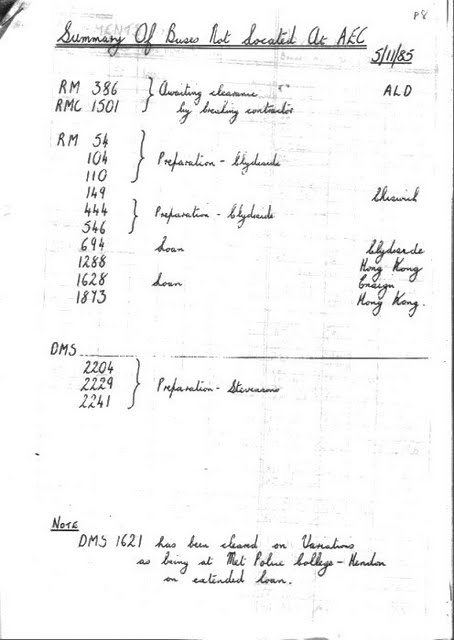 P8
Summary Of Buses Not Located At AEC
5/11/85
RM 386 } Awaiting clearance ALD
RMC 1501 } by breaking contractor
RM 54
104 } Preparation - Clydeside
110
149 Chiswick
444 } Preparation - Clydeside
546
694 Loan Clydeside
1288 Hong Kong
1628 Loan Ensign
1873 Hong Kong.
DMS
2204
2229 } Preparation - Stevensons
2241
NOTE
DMS 1621 has been cleared on Variations
as being at Met Police College - Hendon
on extended loan.